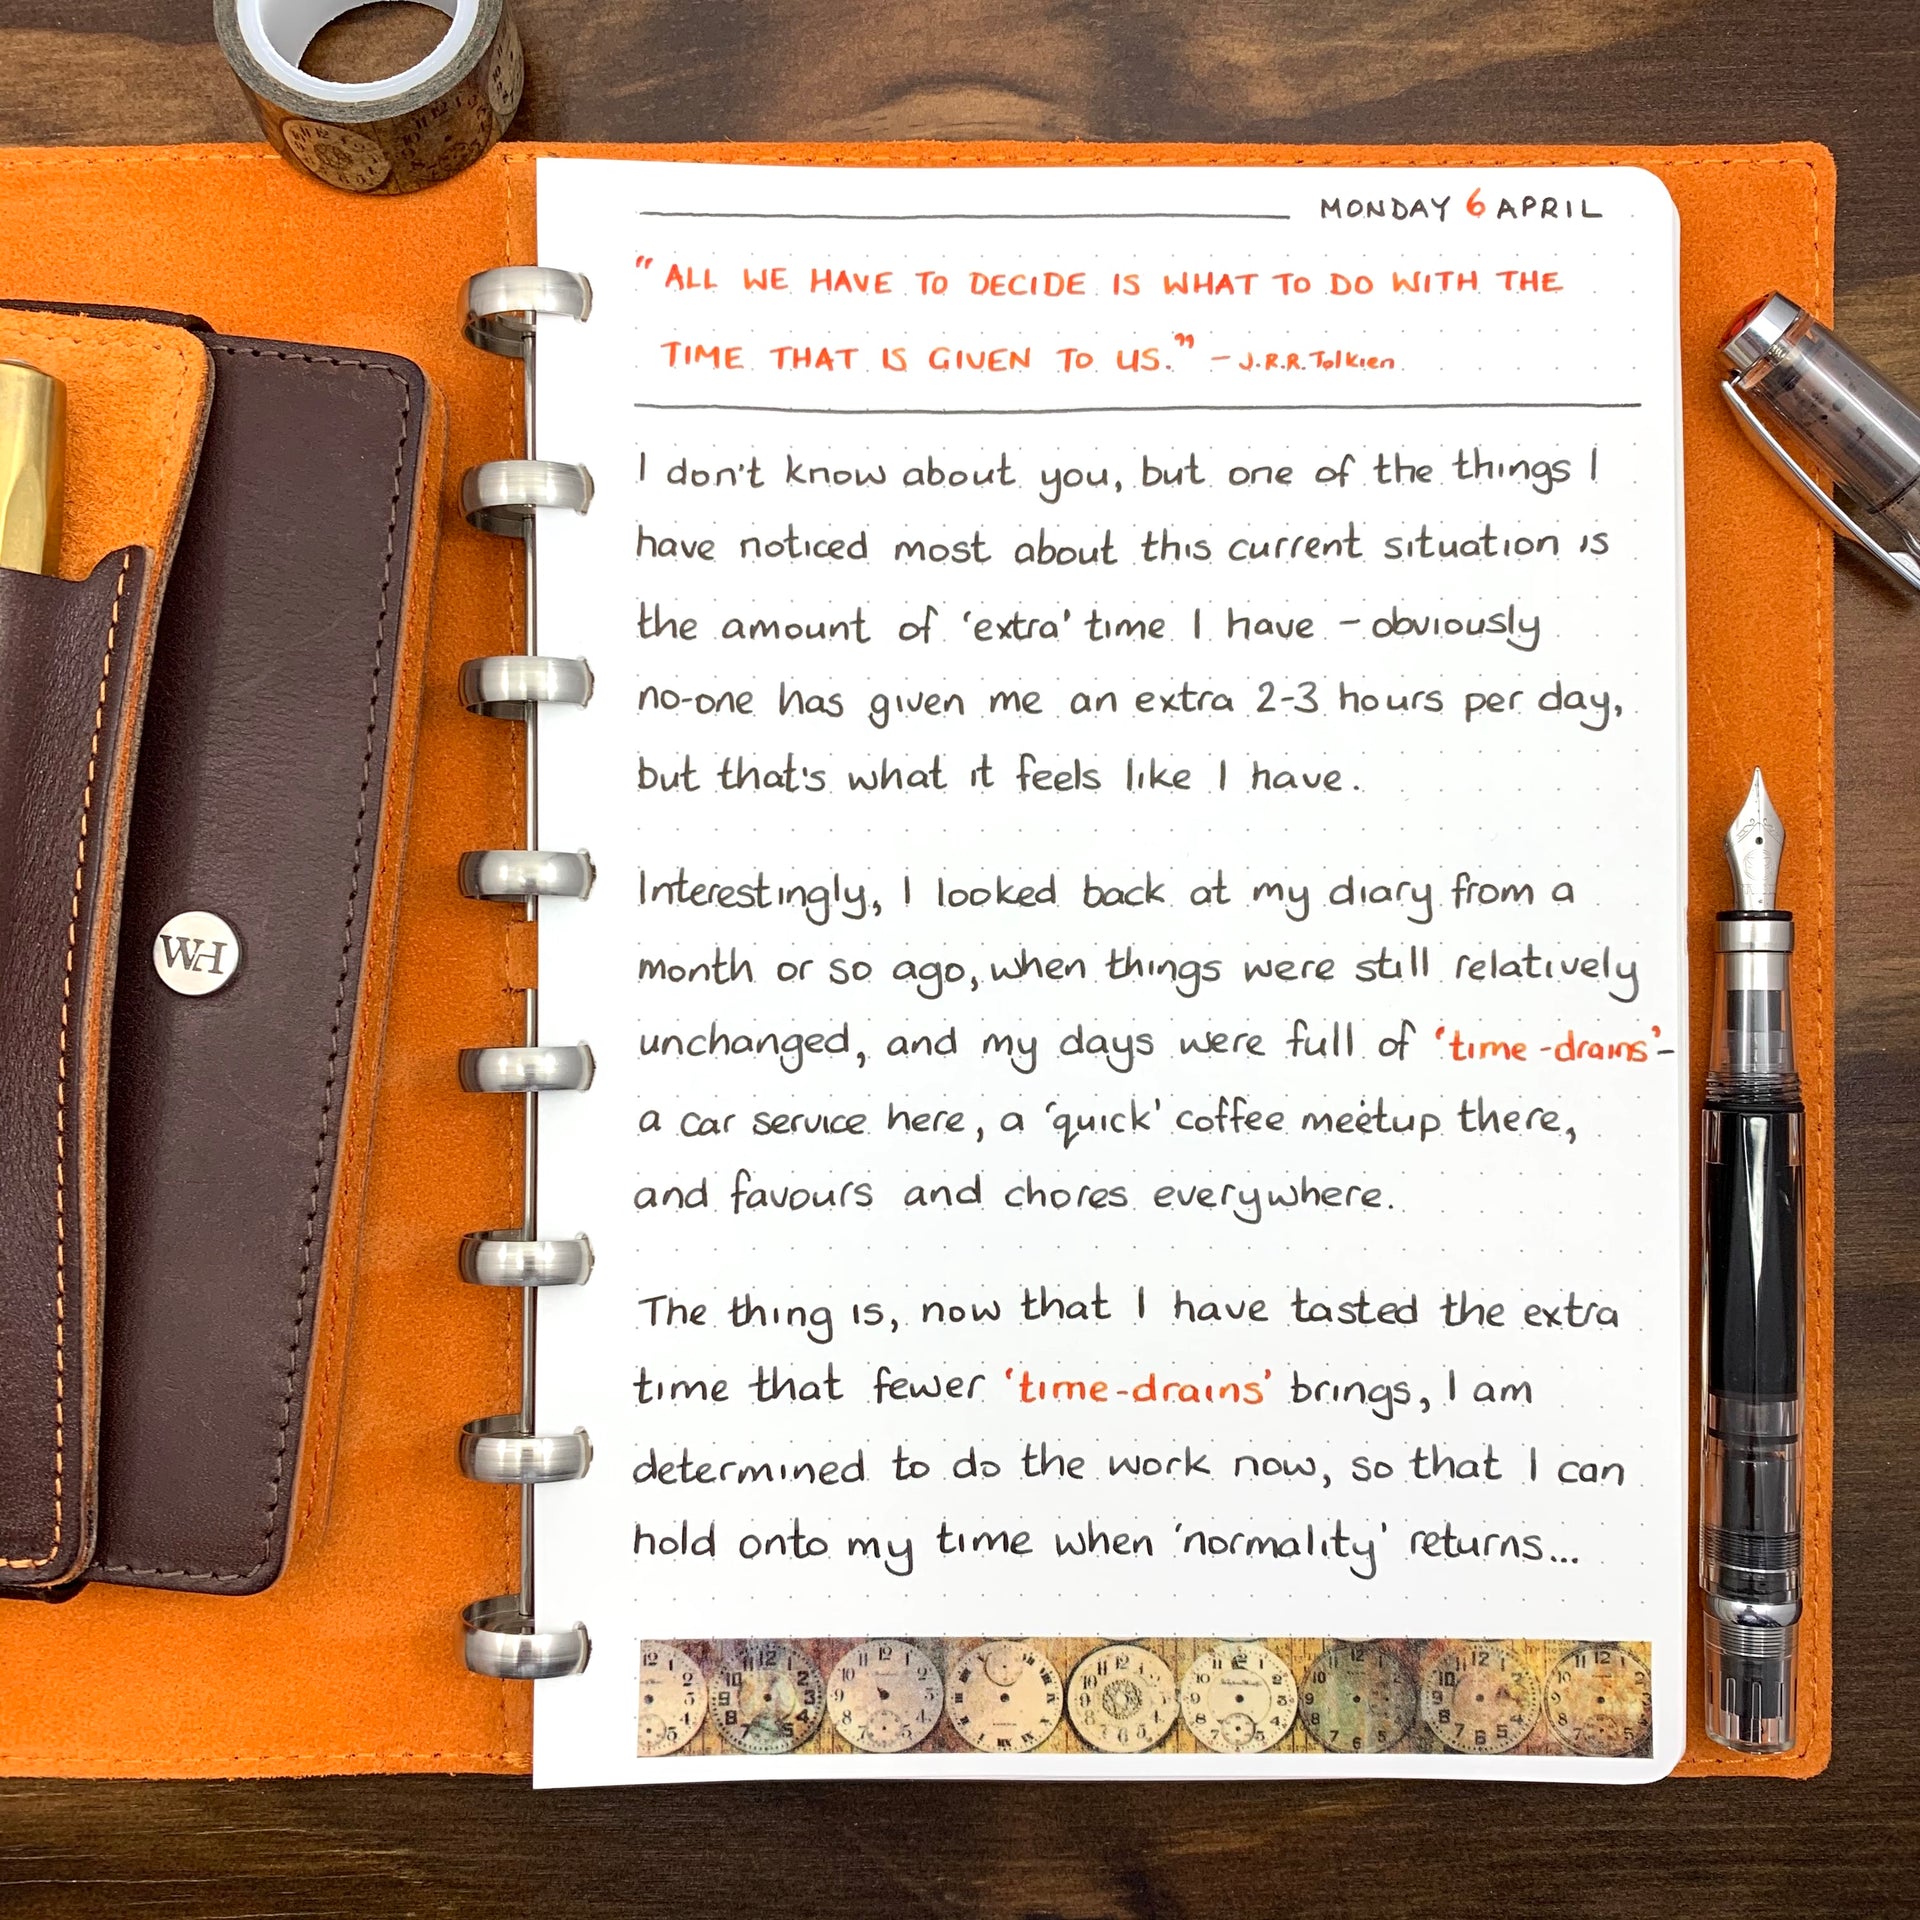 MONDAY 6 APRIL
"ALL WE HAVE TO DECIDE IS WHAT TO DO WITH THE
TIME THAT IS GIVEN TO US." - J.R.R. Tolkien
I don't know about you, but one of the things I
have noticed most about this current situation is
the amount of 'extra' time I have - obviously
no-one has given me an extra 2-3 hours per day,
but that's what it feels like I have.
Interestingly, I looked back at my diary from a
month or so ago, when things were still relatively
unchanged, and my days were full of 'time-drains'-
a car service here, a 'quick' coffee meetup there,
and favours and chores everywhere.
The thing is, now that I have tasted the extra
time that fewer 'time-drains' brings, I am
determined to do the work now, so that I can
hold onto my time when 'normality' returns...
WH